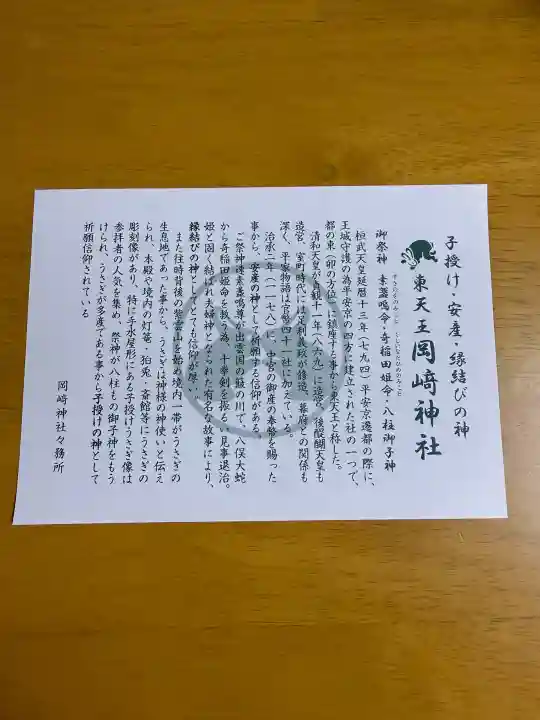 子授け・安産・縁結びの神
東天王 岡﨑神社
すさのをのみこと くしいなだひめのみこと
御祭神 素盞嗚命・奇稲田姫命・八柱御子神
桓武天皇延暦十三年(七九四)平安京遷都の際に、
王城守護の為平安京の四方に建立された社の一つで、
都の東(卯の方位)に鎮座する事から東天王と称した。
清和天皇が貞観十一年(八六九)に造営、後醍醐天皇も
造営、室町時代には足利義政が修造、幕府との関係も
深く、平家物語は官幣四十一社に加えている。
治承二年(一一七八)に、中宮の御産の奉幣を賜った
事から、安産の神として祈願する信仰がある。
ご祭神速素盞鳴尊が出雲国の簸の川で、八俣大蛇
から奇稲田姫命を救う為、十拳剣を振るい見事退治。
姫と固く結ばれ夫婦神となられた有名な故事により、
縁結びの神としてとても信仰が厚い。
また往時背後の紫雲山を始め境内一帯がうさぎの
生息地であった事から、うさぎは神様の神使いと伝え
られ、本殿や境内の灯篭・狛兎・斎館等にうさぎの
彫刻像があり、特に手水屋形にある子授けうさぎ像は
参拝者の人気を集め、祭神が八柱もの御子神をもう
けられ、うさぎが多産である事から子授けの神として
祈願信仰されている
岡﨑神社々務所